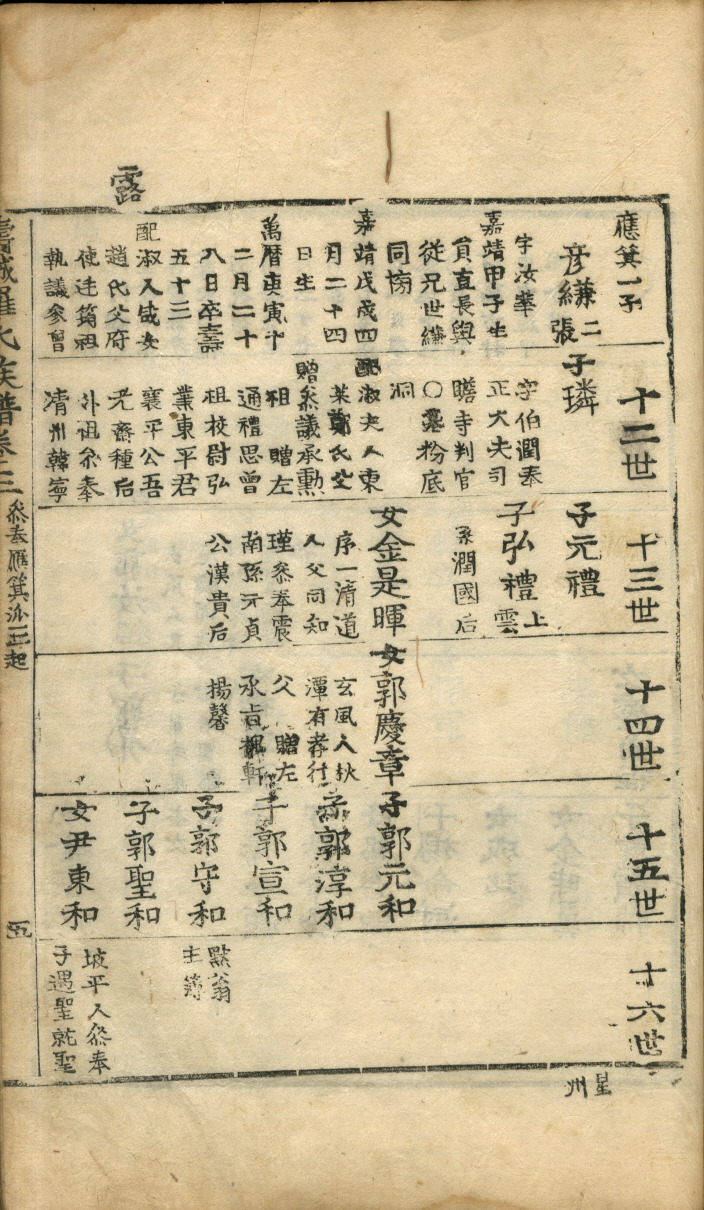 露
應箕一子
彦縑 二張
字汝華
嘉靖甲子生
負直長與
從兄世縑
同榜
嘉靖戊戌四
月二十四
日生
萬曆庚寅十
二月二十
八日卒壽
五十三
配淑人咸安
趙氏父府
使連籌祖
執議參曾
十二世
子璘
字伯潤奉
正大夫司
贍寺判官
〇墓粉底
洞
配淑夫人東
萊鄭氏父
贈參議承勳
祖 贈左
通禮思曾
祖校尉弘
業東平君
襄平公吾
老齋種后
外祖參奉
清州韓寧
十三世
子元禮
子弘禮 上雲
系潤國后
女金是暉
序一清道
人父同知
瑾參奉震
南孫元貞
公漢貴后
十四世
女郭慶章
玄風人狄
潭有孝行
父 贈左
承旨軒
揚馨
十五世
子郭元和
子郭淳和
子郭宣和
子郭守和
子郭聖和
女尹東和
十六世
默翁
主簿
坡平人參奉
子遇聖就聖
壽城羅氏族譜卷之三
參奉應箕派一 起
五
星州